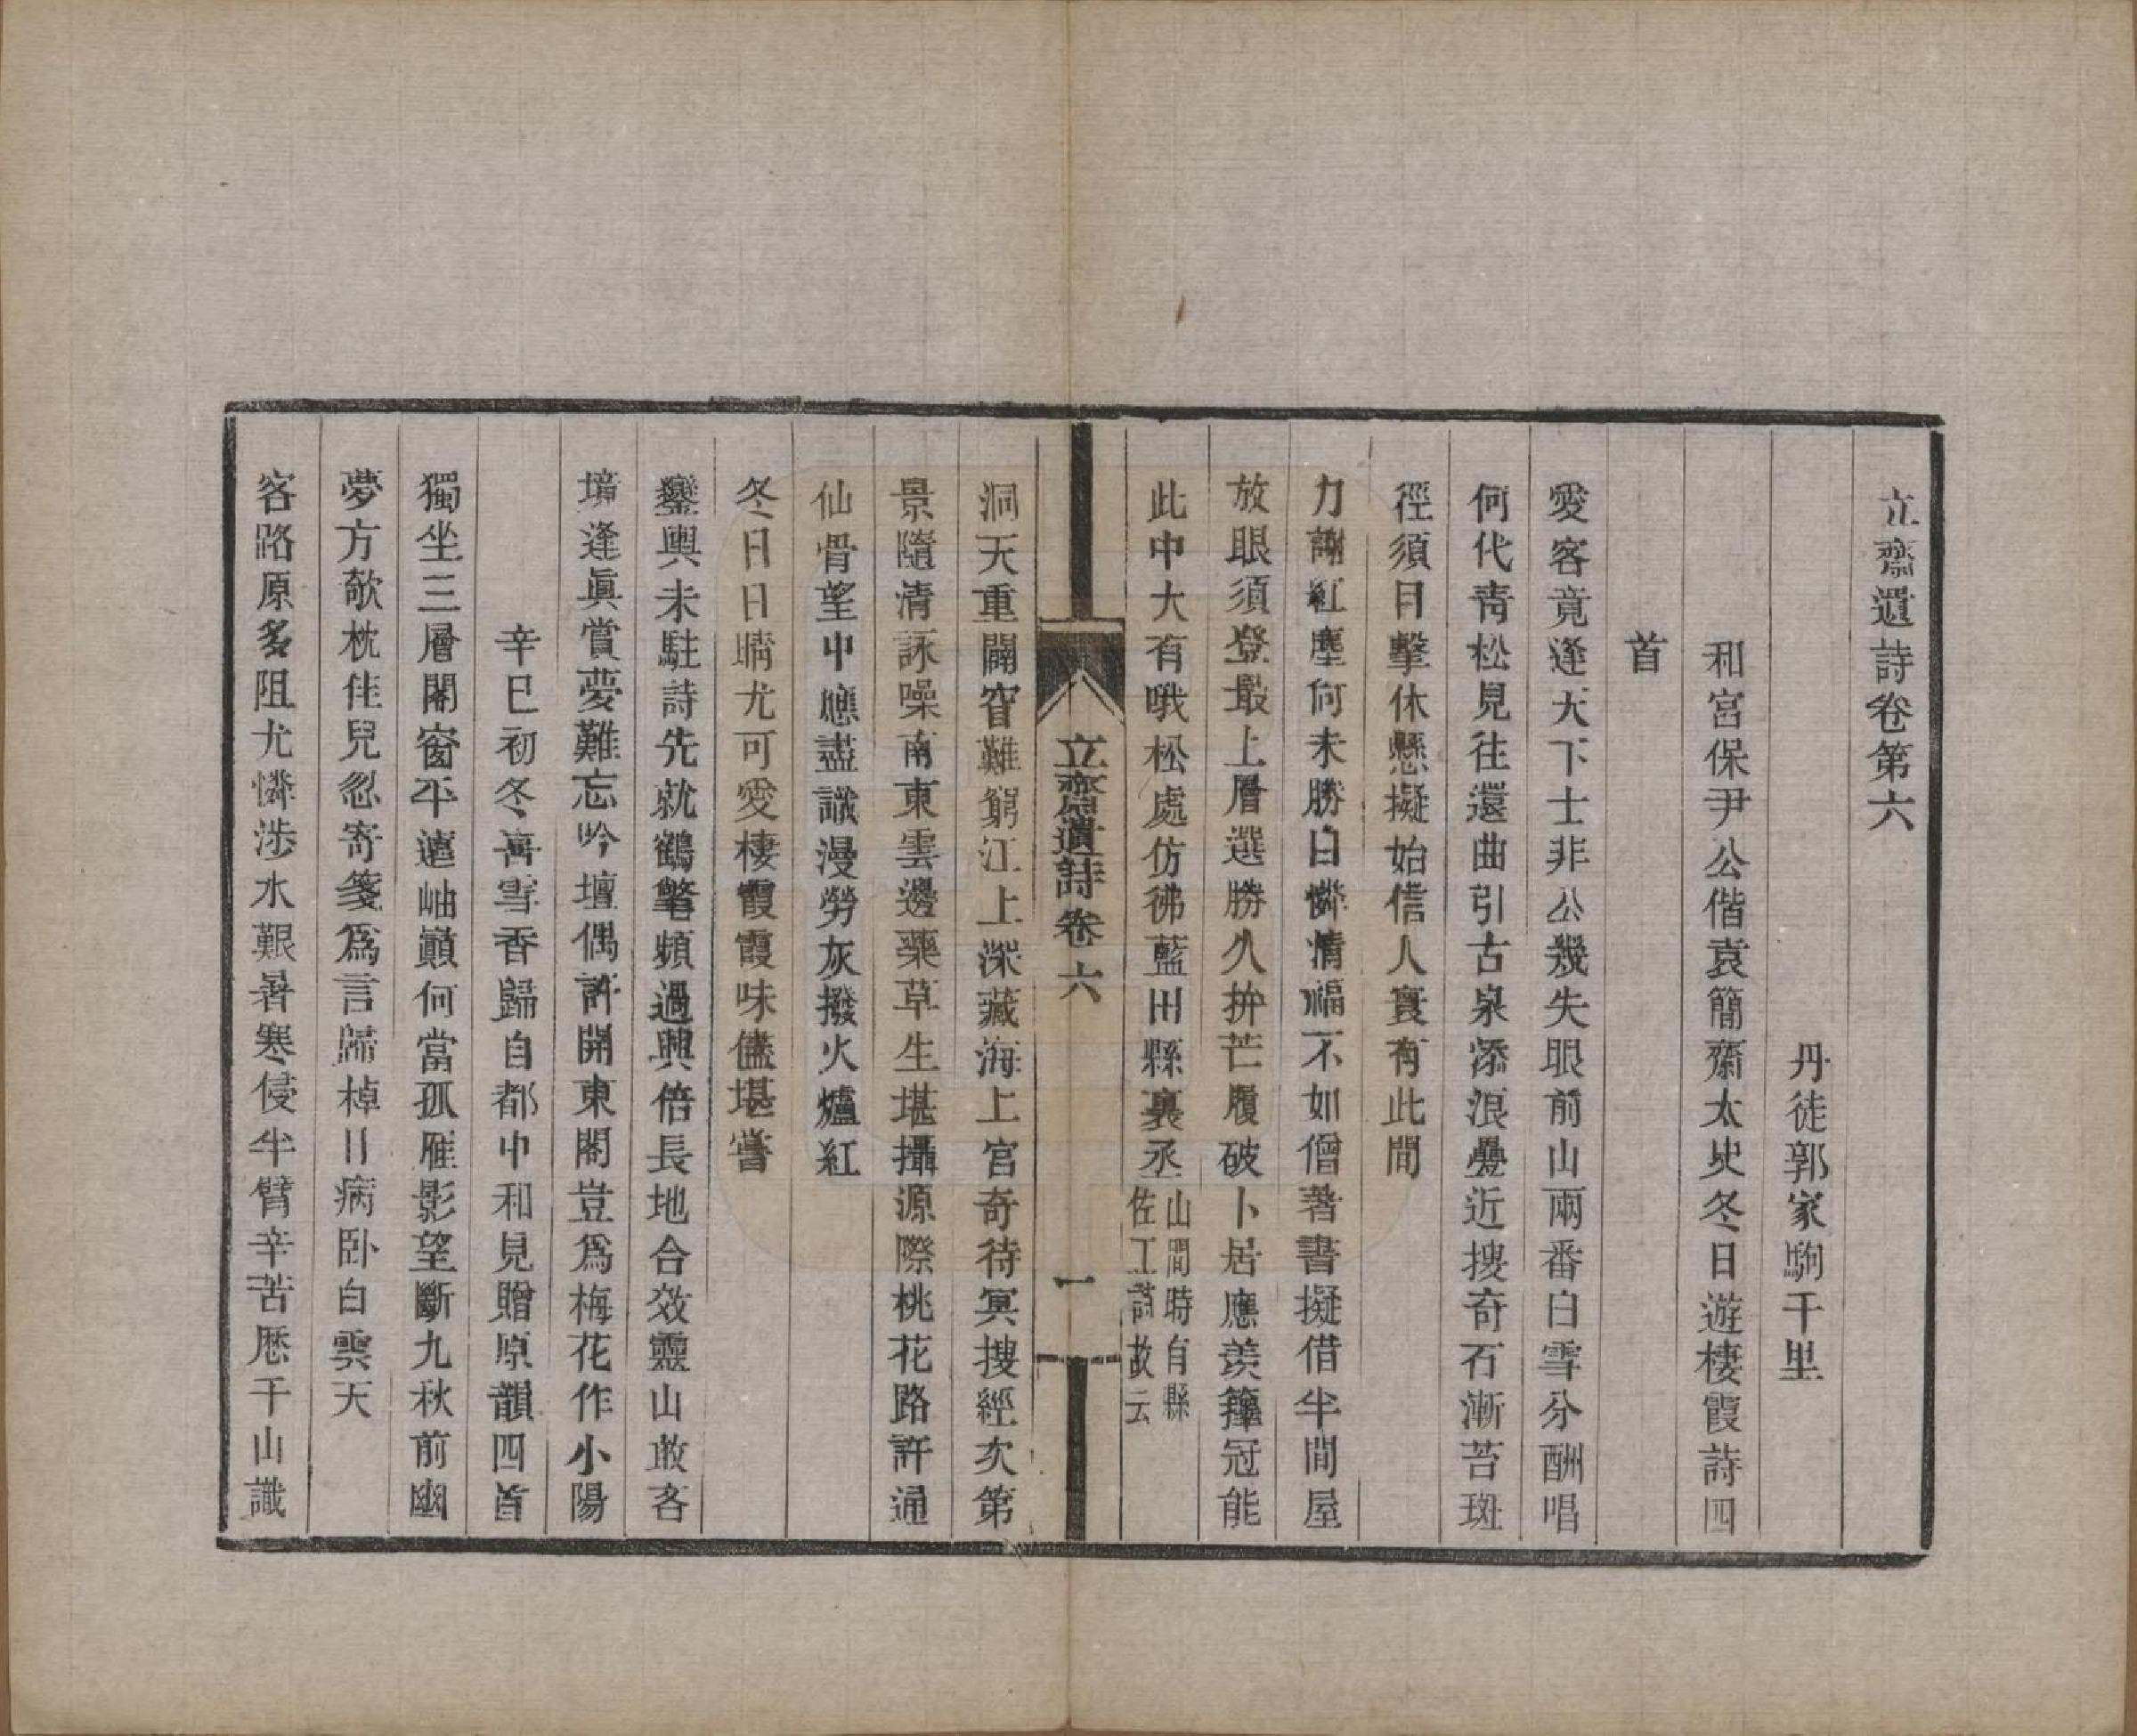 立齋遺詩卷第六
丹徒郭家駒千里
和宮保尹公偕袁簡齋太史冬日遊棲霞詩四
首
愛客竟逢天下士非公幾失眼前山兩番白雪分酬唱
何代靑松見往還曲引古泉添浪疊近搜奇石漸苔斑
徑須目擊休懸擬始信人寰有此間
力謝紅塵何未勝白憐情福不如僧著書擬借半間屋
放眼須登最上層選勝久拚芒履破卜居應羨籜冠能
此中大有哦松處仿彿藍田縣裏丞山間時有縣佐工詩故云
立齋遺詩卷六
一
洞天重闢窅難窮江上深藏海上宮奇待冥搜經次第
景隨清詠噪南東雲邊藥草生堪攝源際桃花路許通
仙骨望中應盡識漫勞灰撥火爐紅
冬日日晴尤可愛棲霞霞味儘堪嘗
鑾輿未駐詩先就鶴氅頻過興倍長地合效靈山敢吝
境逢眞賞夢難忘吟壇偶許開東閣豈爲梅花作小陽
辛巳初冬喜雪香歸自都中和見贈原韻四首
獨坐三層閣窗平遠岫巔何當孤雁影望斷九秋前幽
夢方欹枕佳兒忽寄箋爲言歸棹日病卧白雲天
客路原多阻尤憐涉水艱暑寒侵半臂辛苦歷千山讖